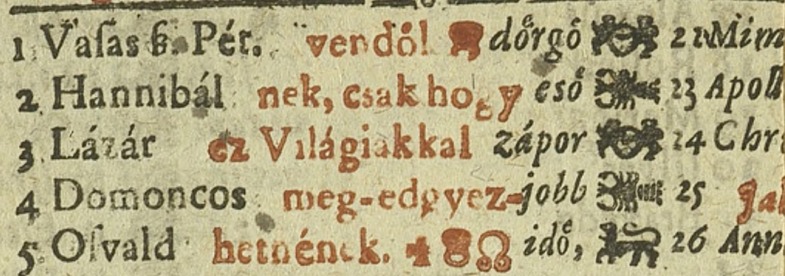 1 Vaſas ſz. Pét. vendől dőrgő 21 Mim
2 Hannibál nek, csak hogy eső 23 Apoll
3 Lázár ez Világiakkal zápor 24 Chr
4 Domoncos meg-edgyez- jobb 25 Jak
5 Oſvald hetnének. idő, 26 Ann